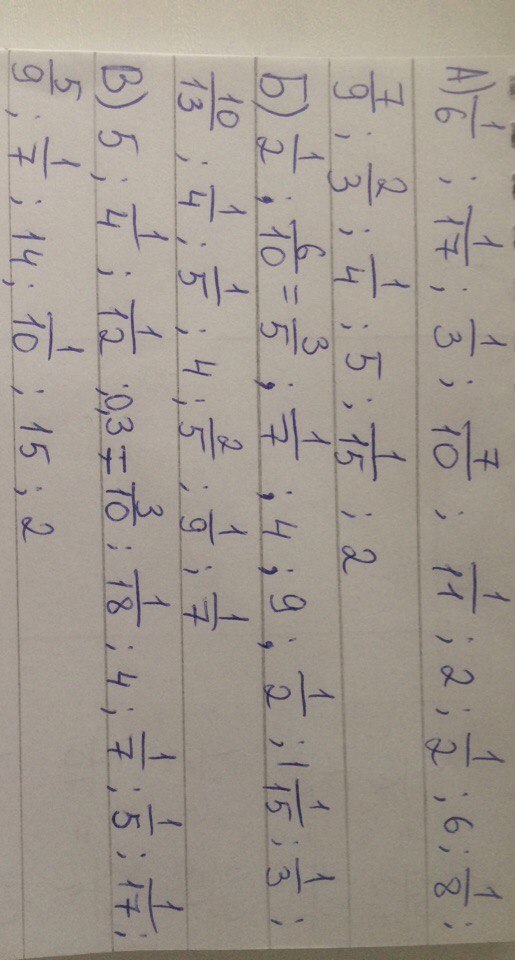 А) 1/6 ; 1/17 ; 1/3 ; 7/10 ; 1/11 ; 2 ; 1/2 ; 6 ; 1/8 ;
7/9 ; 2/3 ; 1/4 ; 5 ; 1/15 ; 2
Б) 1/2 ; 6/10 = 3/5 ; 1/7 ; 4 ; 9 ; 1/2 ; 1 1/15 ; 1/3 ;
10/13 ; 1/4 ; 1/5 ; 4 ; 2/5 ; 1/9 ; 1/7
В) 5 ; 1/4 ; 1/12 ; 0,3 = 3/10 ; 1/18 ; 4 ; 1/7 ; 1/5 ; 1/17 ;
5/9 ; 1/7 ; 14 ; 1/10 ; 15 ; 2